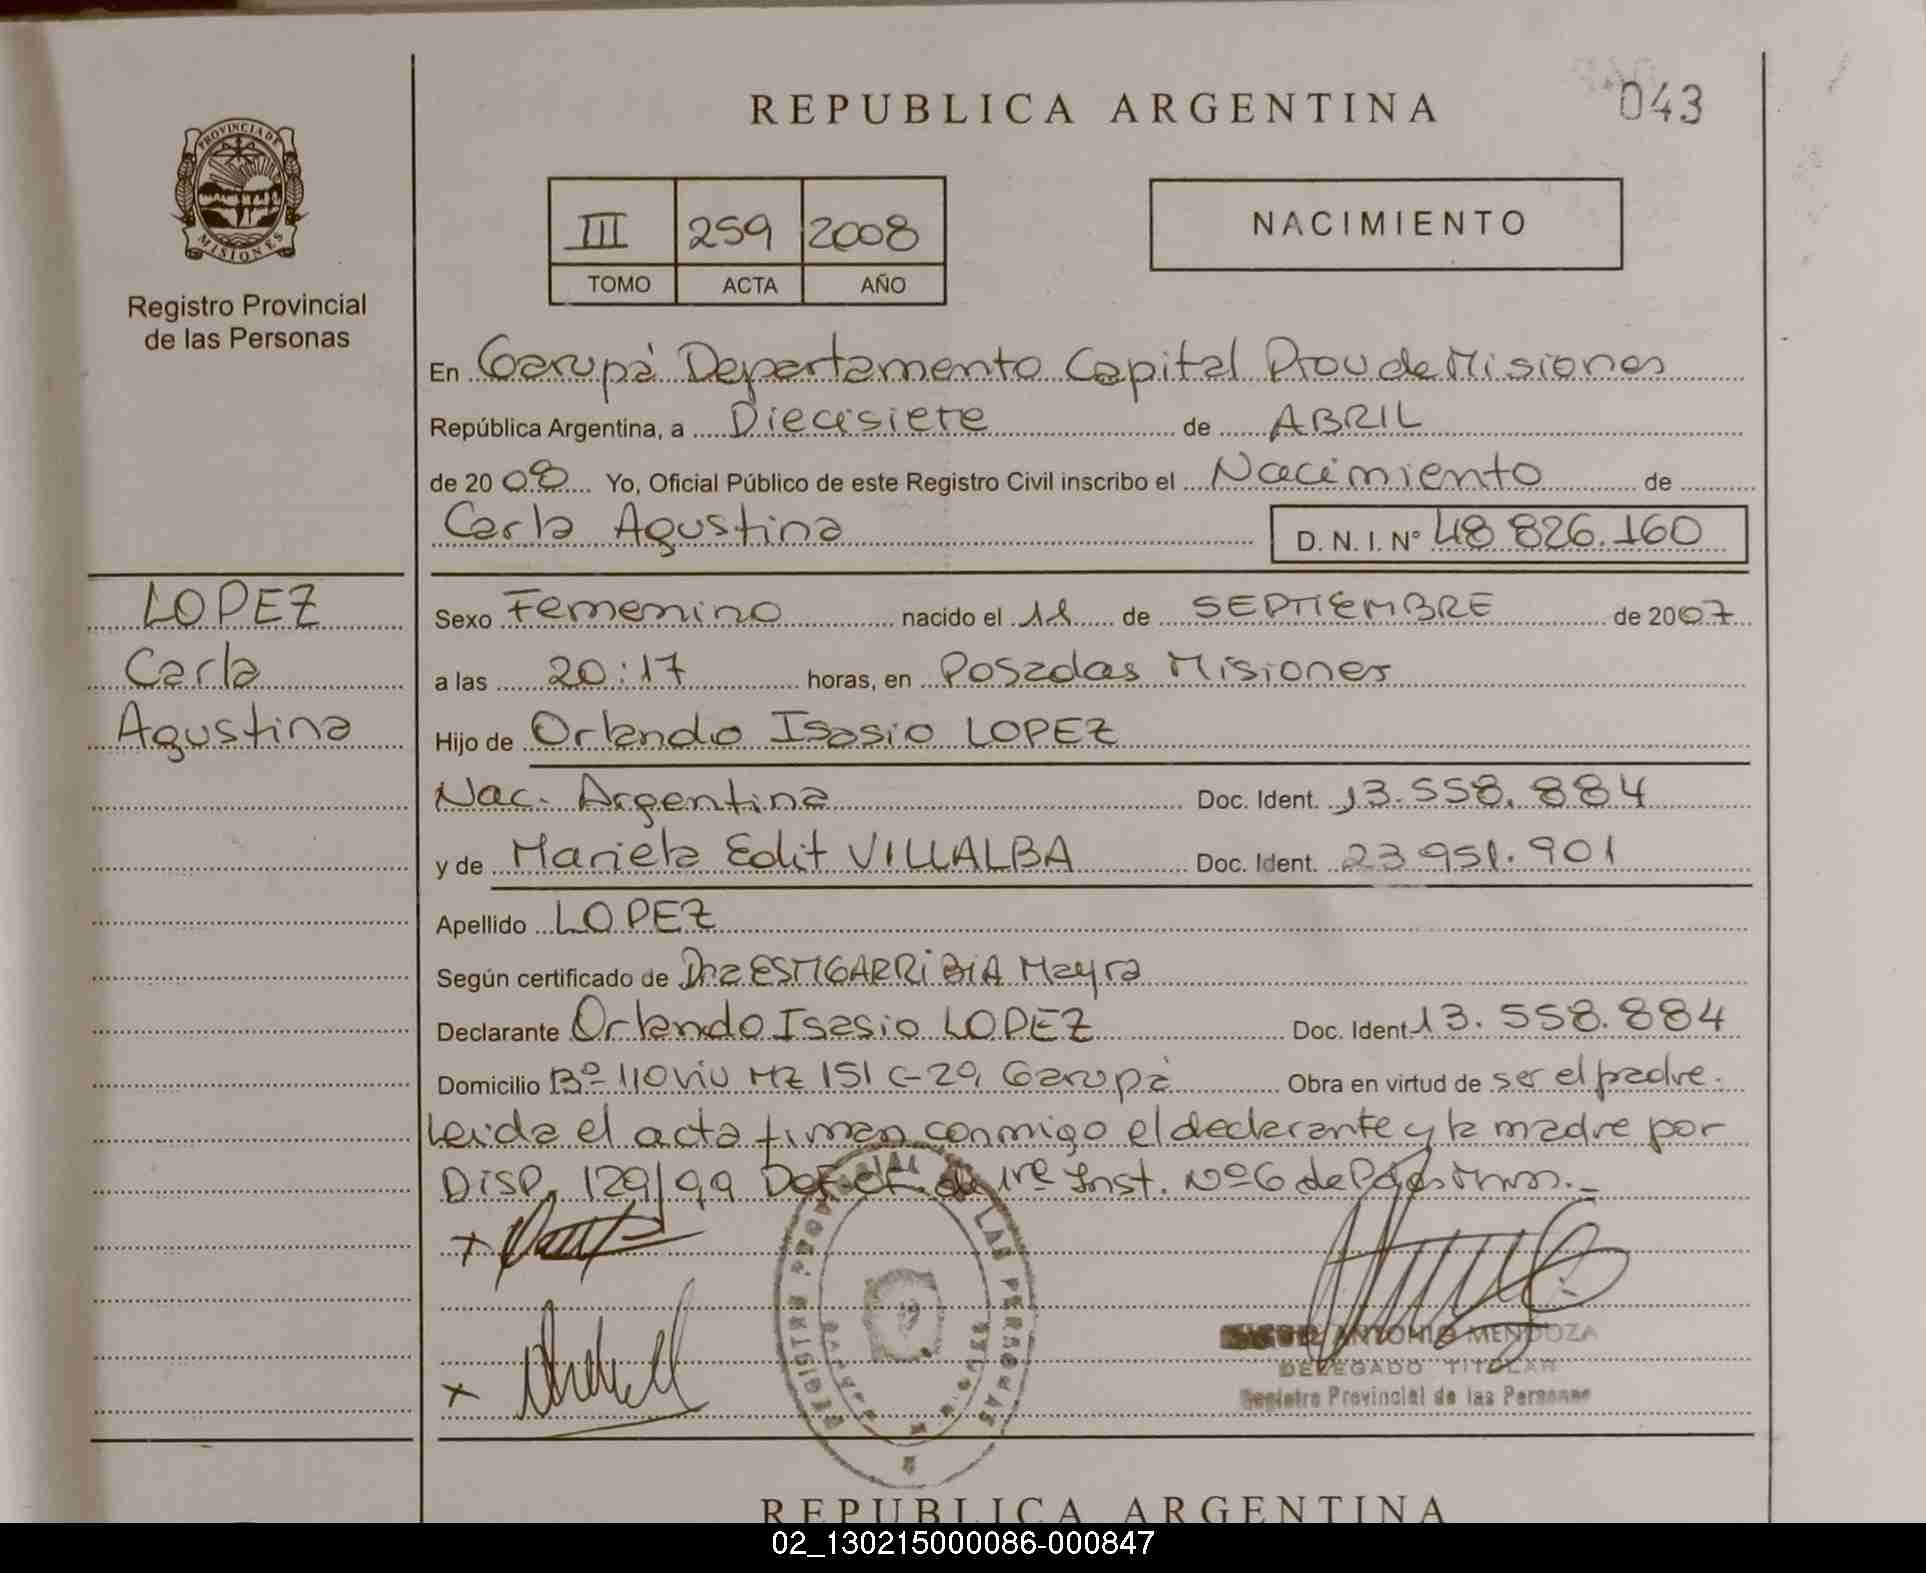 REPUBLICA ARGENTINA
043
PROVINCIA DE
MISIONES
Registro Provincial
de las Personas
III 259 2008
TOMO ACTA AÑO
NACIMIENTO
En Garupá Departamento Capital Prov de Misiones
República Argentina, a Diecisiete de ABRIL
de 2008 Yo, Oficial Público de este Registro Civil inscribo el Nacimiento de
Carla Agustina D.N.I. Nº 48 826.160
LOPEZ
Carla
Agustina
Sexo Femenino nacido el 11 de SEPTIEMBRE de 2007
a las 20:17 horas, en Posadas Misiones
Hijo de Orlando Isasio LOPEZ
Nac. Argentina Doc. Ident. 13.558.884
y de Mariela Edit VILLALBA Doc. Ident. 23.951.901
Apellido LOPEZ
Según certificado de Dra ESTIGARRIBIA Mayra
Declarante Orlando Isasio LOPEZ Doc. Ident. 13.558.884
Domicilio Bº 110 viv MZ 151 C-29, Garupá Obra en virtud de ser el padre.
Leida el acta firman conmigo el declarante y la madre por
DISP. 129/99 Def 1re Inst. Nº6 de
REGISTRO PROVINCIAL DE LAS PERSONAS
ANTONIO MENDOZA
DELEGADO TITULAR
Registro Provincial de las Personas
REPUBLICA ARGENTINA
02_130215000086-000847